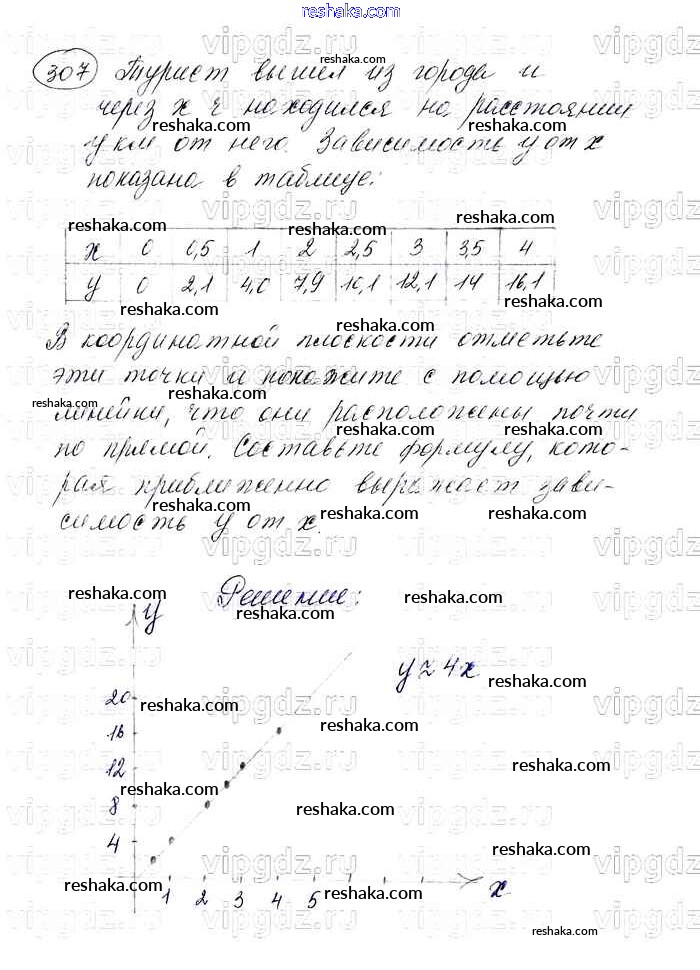 reshaka.com
307 Турист вышел из города и
через x ч находился на расстоянии
y км от него. Зависимость y от x
показана в таблице:
x 0 0,5 1 2 2,5 3 3,5 4
y 0 2,1 4,0 7,9 10,1 12,1 14 16,1
В координатной плоскости отметьте
эти точки и покажите с помощью
линейки, что они расположены почти
по прямой. Составьте формулу, кото-
рая приближенно выражает зави-
симость y от x.
Решение:
y
y ≈ 4x
20
16
12
8
4
1 2 3 4 5 x
vipgdz.ru